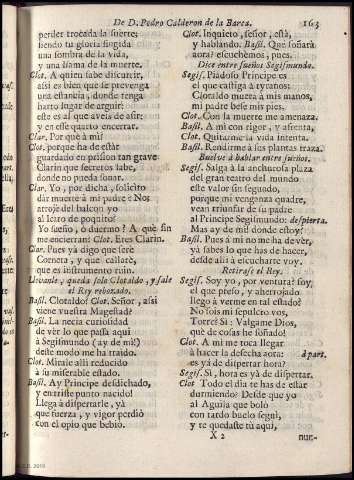 De D. Pedro Calderon de la Barca. 163
perder trocada la suerte;
siendo tu gloria fingida
una sombra de la vida,
y una llama de la muerte.
Clot. A quien sabe discurir,
assi es bien que se prevenga
una estancia, donde tenga
harto lugar de arguir:
este es al que aveis de asir;
y en esse quarto encerrar.
Clar. Por què à mi?
Clot. porque ha de estàr
guardado en prission tan grave
Clarin que secretos sabe,
donde no pueda sonar.
Clar. Yo, por dicha, solicito
dar muerte à mi padre? No:
arrojè del balcon yo
al Icaro de poquito?
Yo sueño, o duermo? A què fin
me encierran? Clot. Eres Clarin.
Clar. Pues yà digo que serè
Corneta, y que callarè,
que es instrumento ruin.
Llevanle, queda solo Clotaldo, y sale
el Rey rebozado.
Basil. Clotaldo? Clot. Señor, assi
viene vuestra Magestad?
Basil. La necia curiosidad
de vèr lo que passa aqui
à Segismundo (ay de mi!)
deste modo me ha traido.
Clot. Mirale alli reducido
à su miserable estado.
Basil. Ay Principe desdichado,
y en triste punto nacido!
Llega à dispertarle, yà
que fuerza, y vigor perdiò
con el opio que bebiò.
Clot. Inquieto, señor, està,
y hablando. Basil. Que soñarà
aora? escuchemos, pues.
Dice entre sueños Segismundo.
Segis. Piadoso Principe es
el que castiga à tyranos:
Clotaldo muera à mis manos,
mi padre bese mis pies.
Clot. Con la muerte me amenaza.
Basil. A mi con rigor, y afrenta,
Clot. Quitarme la vida intenta.
Basil. Rendirme à sus plantas traza.
Buelve à hablar entre sueños.
Segis. Salga à la anchurosa plaza
del gran teatro del mundo
este valor sin segundo,
porque mi venganza quadre,
vean triunfar de su padre
al Principe Segismundo: despierta.
Mas ay de mi! donde estoy?
Basil. Pues à mi no me ha de vèr,
yà sabes lo que has de hacer,
desde alli à escucharte voy.
Retirase el Rey.
Segis. Soy yo, por ventura? soy,
el que preso, y aherrojado
llego à verme en tal estado?
No sois mi sepulcro vos,
Torre? Si: Valgame Dios,
què de cosas he soñado!
Clot. A mi me toca llegar
à hacer la desecha aora: à part.
es yà de dispertar hora?
Segis. Si, hora es yà de dispertar.
Clot Todo el dia te has de estar
durmiendo? Desde que yo
al Aguila que bolò
con tardo buelo seguì,
y te quedaste tù aqui,
X 2 nun-